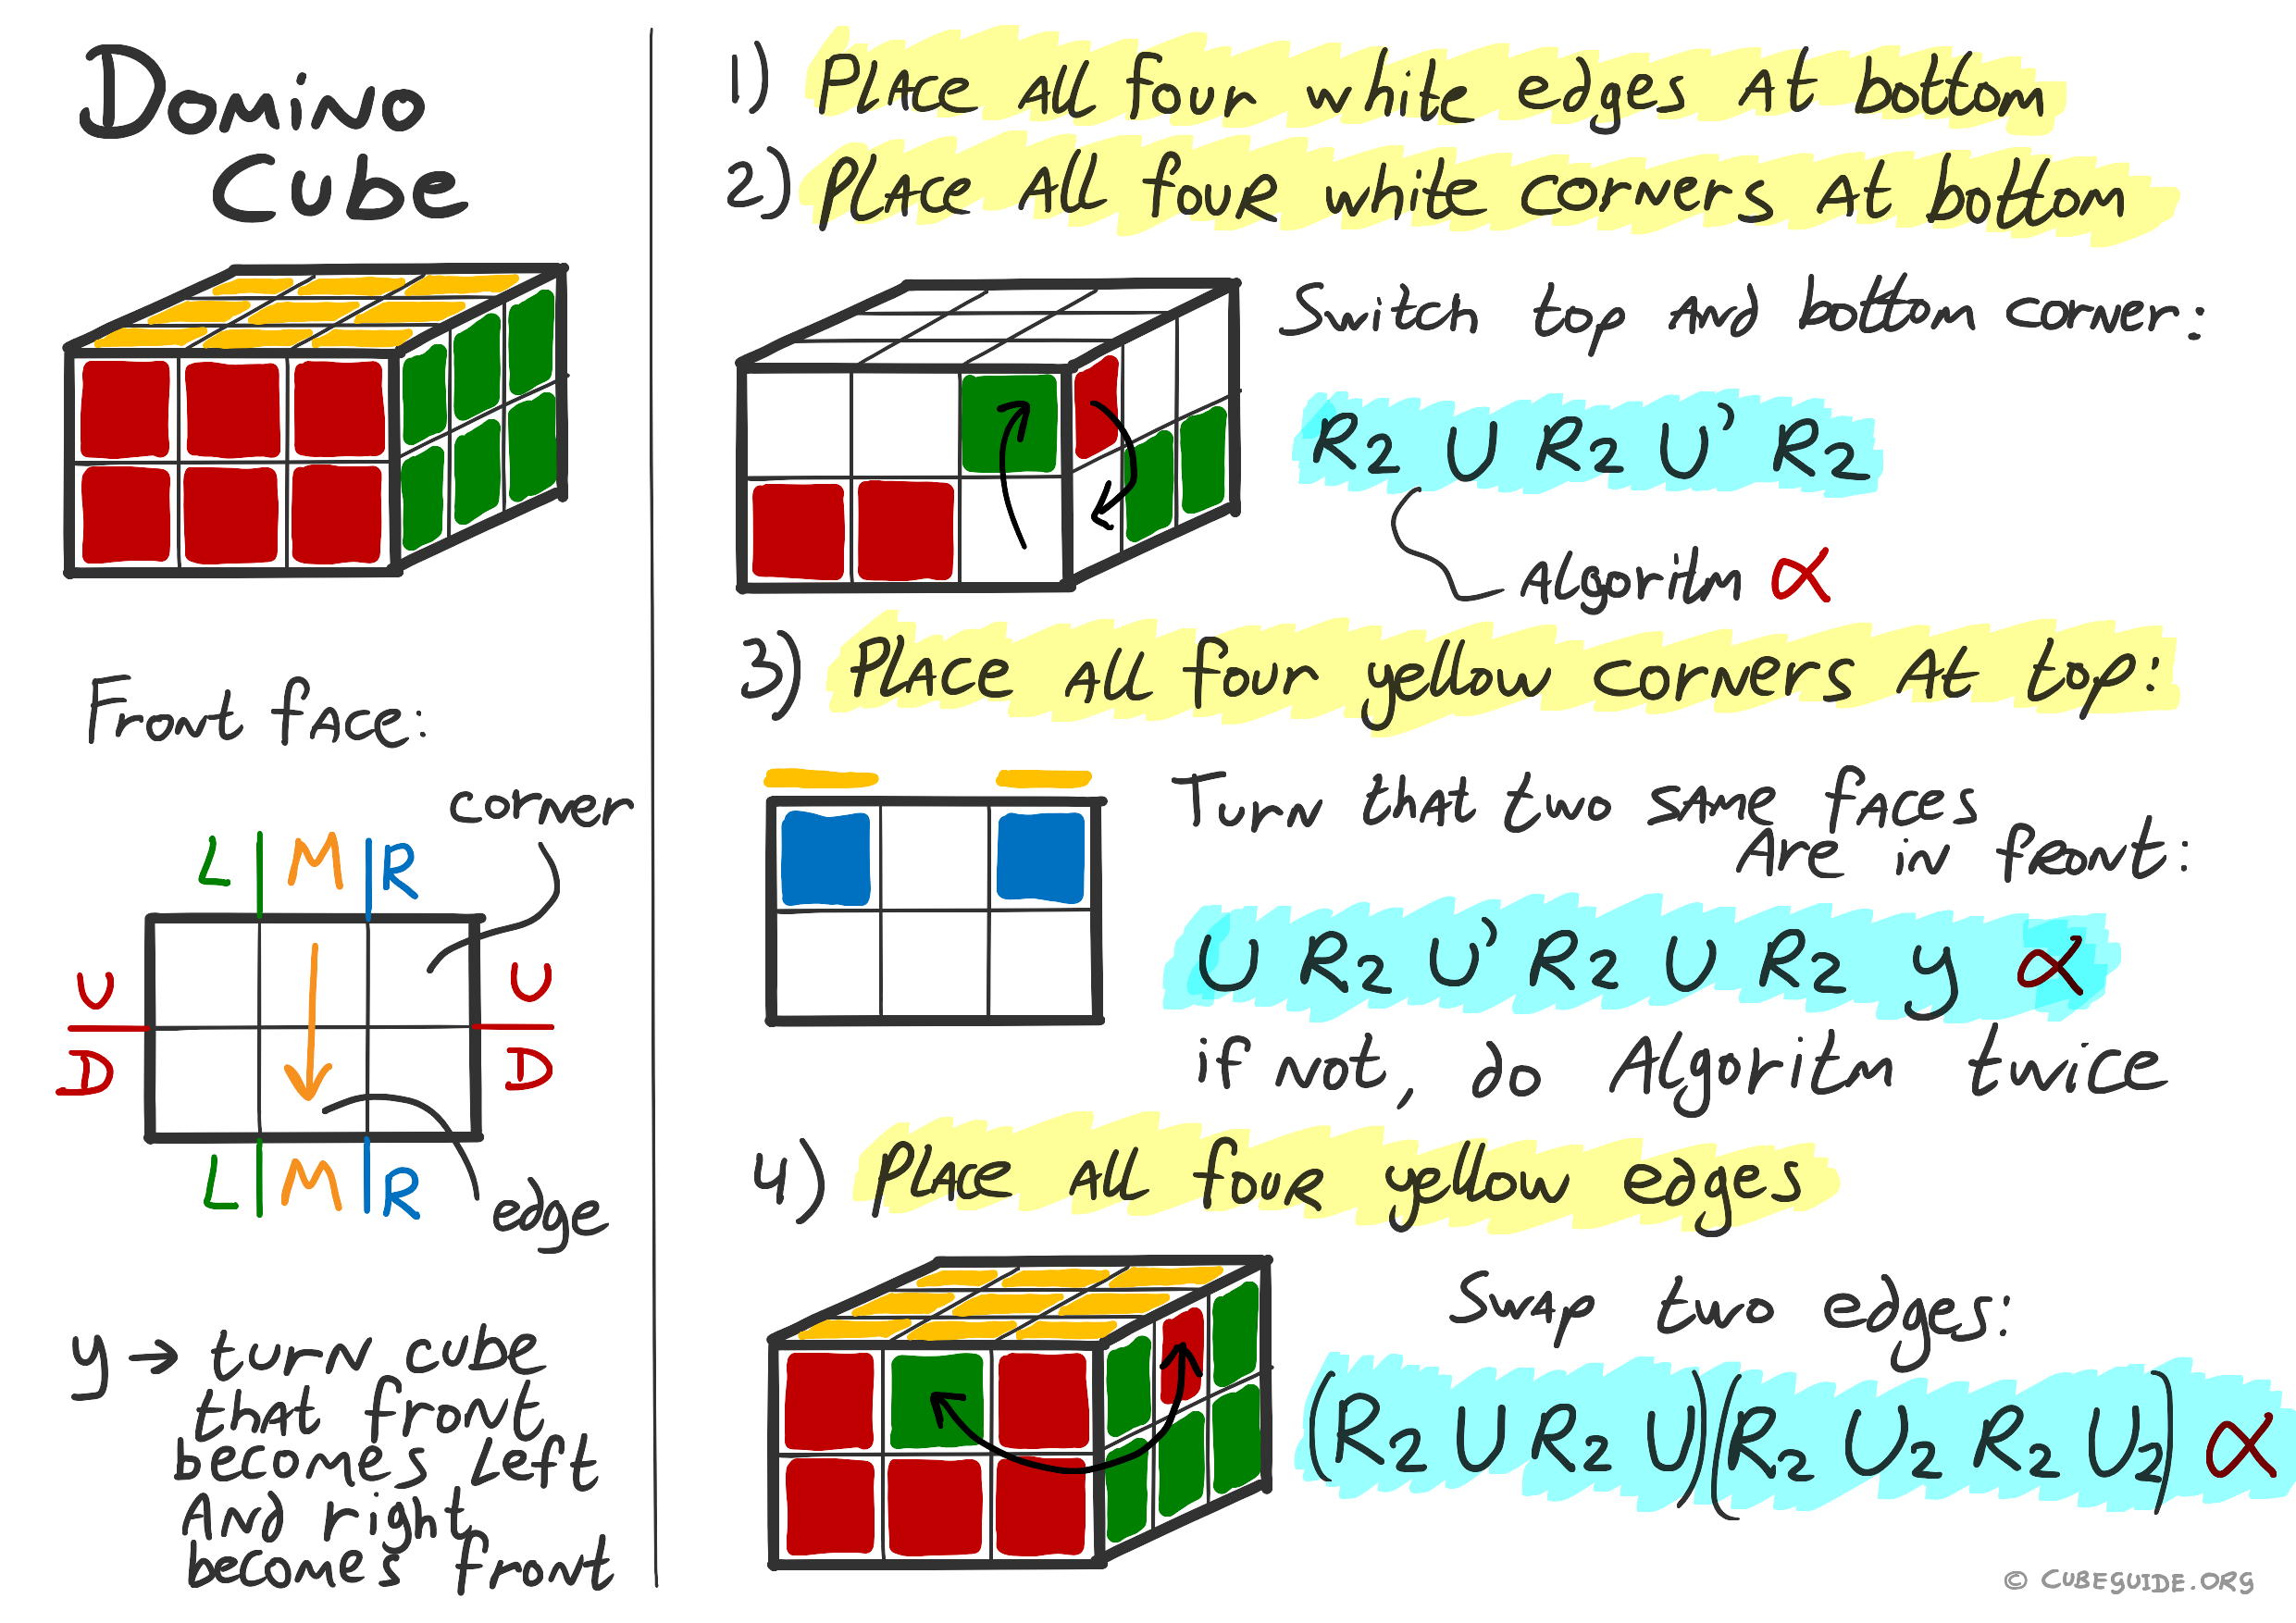 Domino
Cube
Front face:
corner
L M R
U U
D D
L M R
edge
y → turn cube
that front
becomes left
and right
becomes front
1) Place all four white edges at bottom
2) Place all four white corners at bottom
Switch top and bottom corner:
R2 U R2 U' R2
Algoritm α
3) Place all four yellow corners at top:
Turn that two same faces
are in front:
U R2 U' R2 U R2 y α
if not, do Algoritm twice
4) Place all four yellow edges
Swap two edges:
(R2 U R2 U)(R2 U2 R2 U2) α
© CUBEGUIDE.ORG